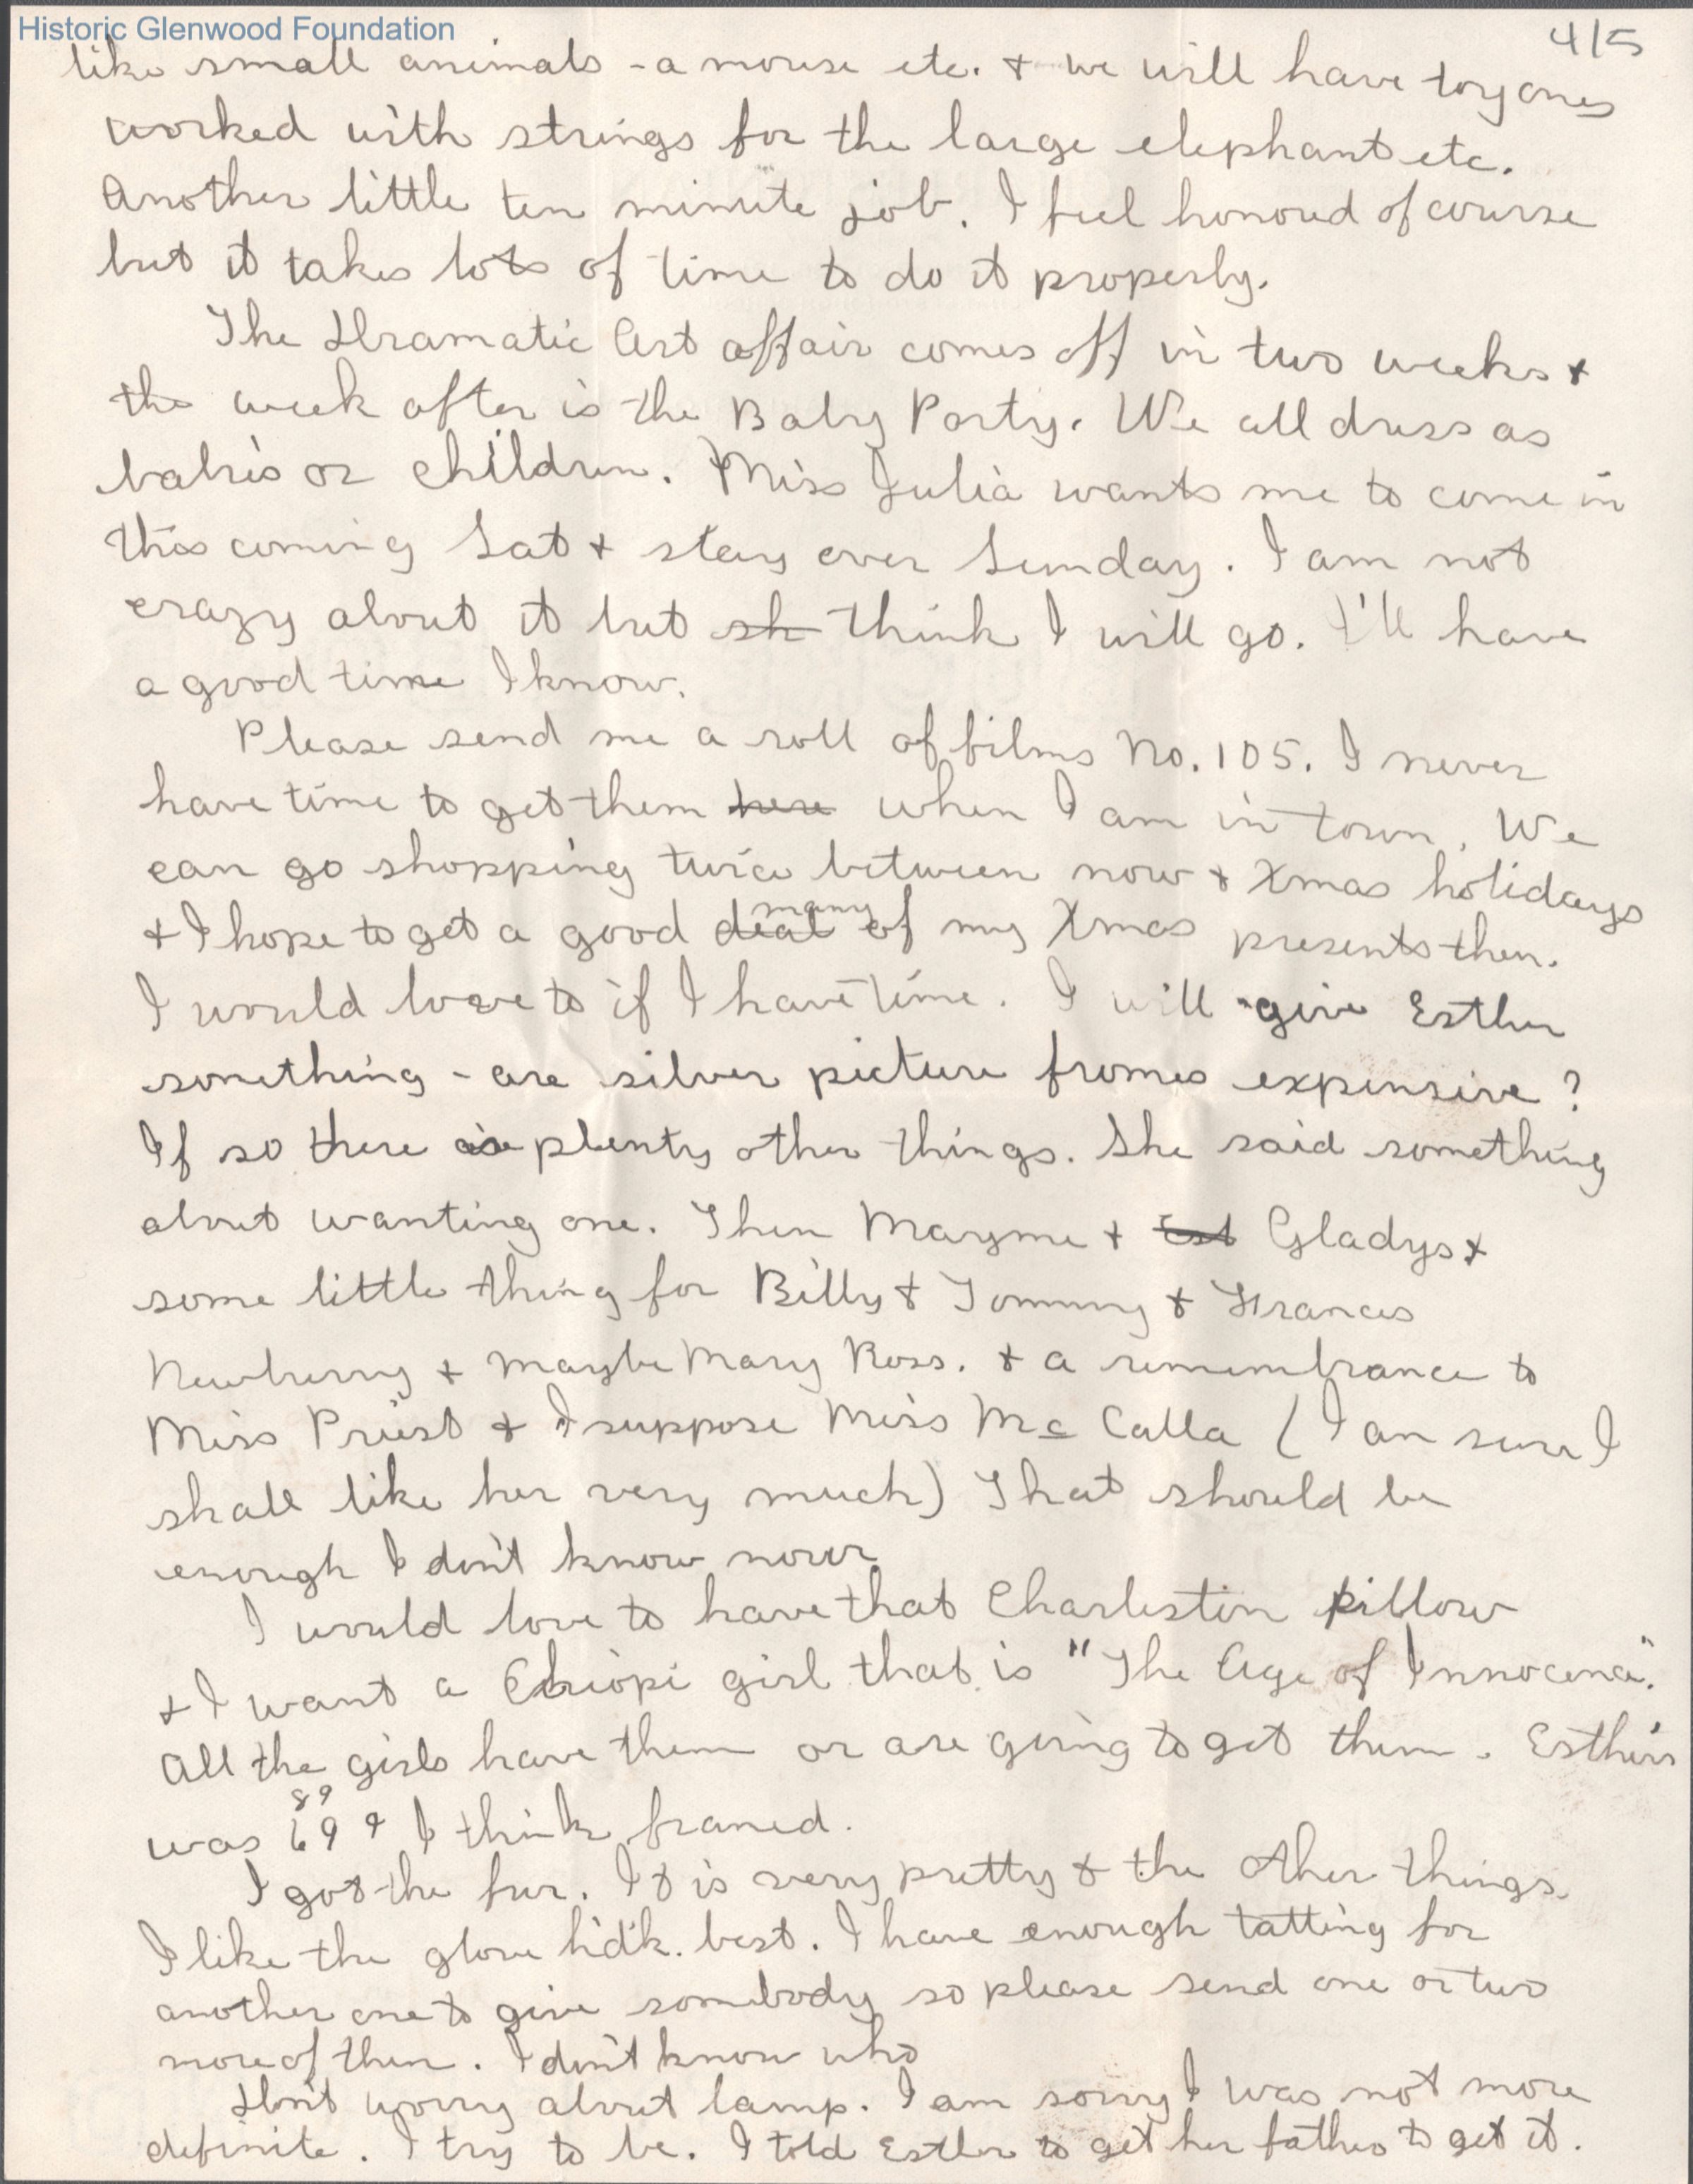 Historic Glenwood Foundation
4/5
like small animals - a mouse etc. + we will have toy ones
worked with strings for the large elephant etc.
Another little ten minute job. I feel honored of course
but it takes lots of time to do it properly.
The Dramatic Art affair comes off in two weeks +
the week after is the Baby Party. We all dress as
babies or children. Miss Julia wants me to come in
this coming Sat + stay over Sunday. I am not
crazy about it but sh think I will go. I'll have
a good time I know.
Please send me a roll of films No. 105. I never
have time to get them here when I am in town. We
can go shopping twice between now + Xmas holidays
+ I hope to get a good deal many of my Xmas presents then.
I would love to if I have time. I will give Esther
something - are silver picture frames expensive?
If so there are plenty other things. She said something
about wanting one. Then Mayme + Est Gladys +
some little thing for Billy + Tommy + Frances
Newberry + maybe Mary Ross. + a remembrance to
Miss Priest + I suppose Miss Mc Calla (I am sure I
shall like her very much) That should be
enough I don't know now
I would love to have that Charleston pillow
+ I want a girl that is "The Age of Innocence".
All the girls have them or are going to get them. Esther's
was 69 89 ¢ I think framed.
I got the fur. It is very pretty + the other things.
I like the glove hd'k. best. I have enough tatting for
another one to give somebody so please send one or two
more of them. I don't know who
Don't worry about lamp. I am sorry I was not more
definite. I try to be. I told Esther to get her father to get it.